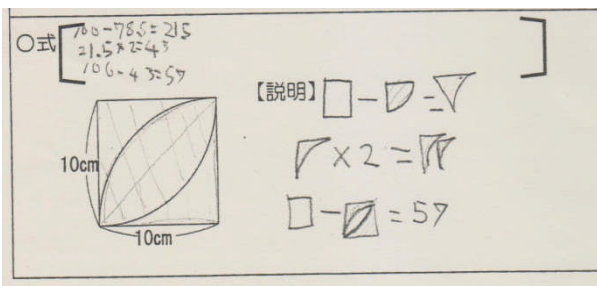 ○式
100-78.5=21.5
21.5×2=43
100-43=57
【説明】□-=
×2=
□-=57
10cm
10cm